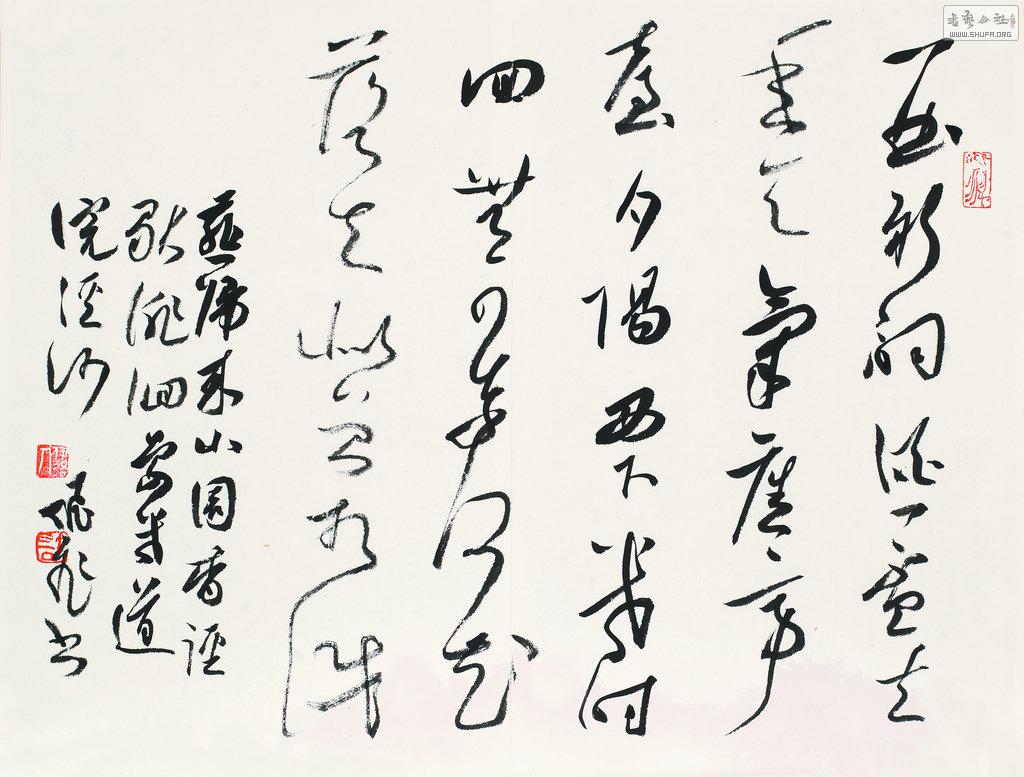 書藝公社
WWW.SHUFA.ORG
一曲新詞酒一盃去
年天氣舊亭
臺夕陽西下幾時
回無可奈何花
落去似曾相識
燕歸來小園香徑
獨徘徊晏殊道
浣溪沙
飛書